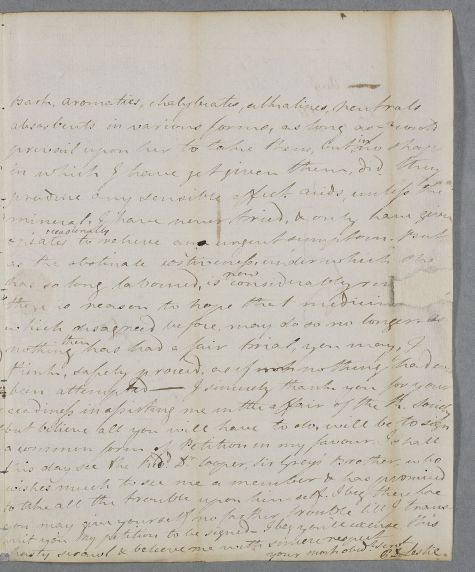 Bark, aromatics, chalybeates, alkalines, neutrals
absorbents in various forms, as long as I could
prevail upon her to take them, but in no shape
in which I have yet given them, did they
produce any sensible effect. acids, unless the
mineral, I have never tried, & only have given
opiates occasionally to relieve an urgent symptom. But
as the obstinate costiveness, under which she
has so long laboured, is now considerably
there is reason to hope that medicines
which disagreed before, may do so no longer. as
nothing then has had a fair trial, you may, I
think, safely proceed, as if nothing had
been attempted — I sincerely thank you for your
readiness in assisting me in the affair of the R. Society
but believe all you will have to do, will be to sign
a common form of Petition in my favour. I shall
this day see the Revd. Dr Cooper, Sir Greys Brother, who
wishes much to see me a member & has promised
to take all the trouble upon himself. I beg therefore
you may give yourself no farther trouble till I trans
mit you my petition to be signed. I beg you'll excuse this
hasty scrawl & believe me with sincere respect
your most obed. Servt.
Leslie